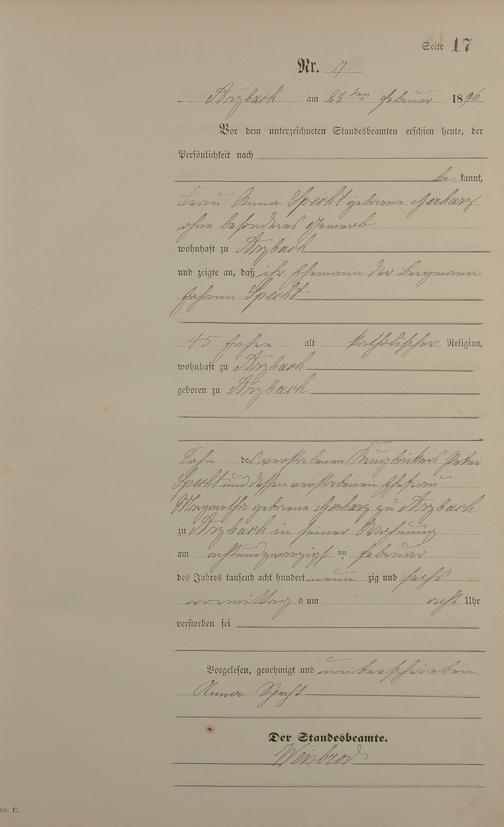 Seite 17
Nr. 17
Arzbach am 28 ten Februar 1896
Vor dem unterzeichneten Standesbeamten erschien heute, der
Persönlichkeit nach
be kannt,
Frau Anna Specht geborene Gerharz
ohne besonderes Gewerb
wohnhaft zu Arzbach
und zeigte an, daß ihr Ehemann der Bergmann
Johann Specht
45 Jahre alt katholischer Religion,
wohnhaft zu Arzbach
geboren zu Arzbach
Sohn des verstorbenen Peter
Specht und dessen verstorbenen Ehefrau
Margaretha geborene Gerharz zu Arzbach
zu Arzbach in seiner Wohnung
am achtundzwanzigsten Februar
des Jahres tausend acht hundert neun zig und sechs
vormittags um acht Uhr
verstorben sei
Vorgelesen, genehmigt und unterschrieben
Anna Specht
Der Standesbeamte.
Weisbrod